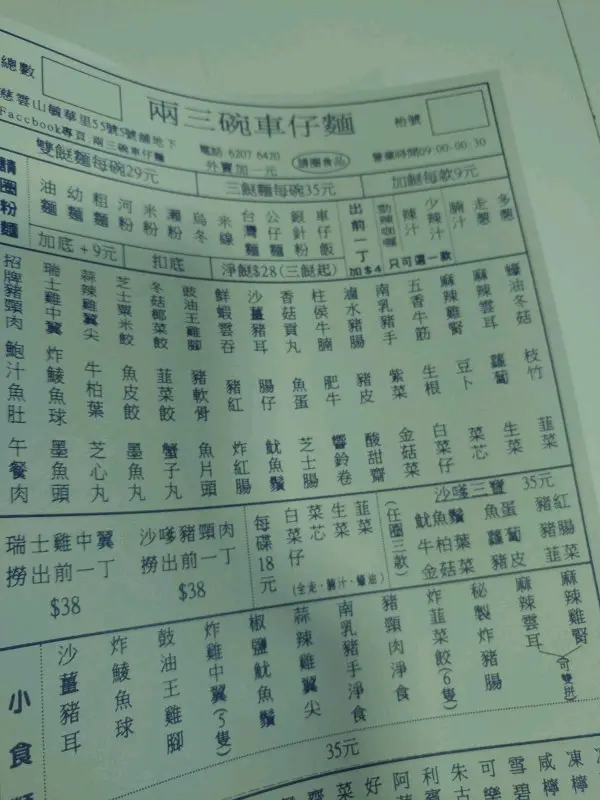 總數
兩三碗車仔麵
枱號
慈雲山毓華里55號5號舖地下
Facebook專頁:兩三碗車仔麵
電話 6207 6420
外賣加一元
請圈食品
營業時間09:00-00:30
雙餸麵每碗29元
三餸麵每碗35元
加餸每款9元
請圈粉麵
油麵 幼麵 粗麵 河粉 米粉 瀨粉 烏冬 米線 台灣麵 公仔麵 銀針粉 車仔飯
出前一丁加$4
勁辣咖喱 辣汁 少辣汁 腩汁 走蔥 多蔥
只可選一款
加底+9元
扣底
淨餸$28(三餸起)
招牌豬頸肉 瑞士雞中翼 蒜辣雞翼尖 芝士粟米餃 冬菇椰菜餃 豉油王雞腳 鮮蝦雲吞 沙薑豬耳 香菇貢丸 柱侯牛腩 滷水豬腸 南乳豬手 五香牛筋 麻辣雞腎 麻辣雲耳 蠔油冬菇
鮑汁魚肚 炸鯪魚球 牛柏葉 魚皮餃 韮菜餃 豬軟骨 豬紅 腸仔 魚蛋 肥牛 豬皮 紫菜 生根 豆卜 蘿蔔 枝竹
午餐肉 墨魚頭 芝心丸 墨魚丸 蟹子丸 魚片頭 炸紅腸 魷魚鬚 芝士腸 響鈴卷 酸甜齋 金菇菜 白菜仔 菜芯 生菜 韮菜
瑞士雞中翼
撈出前一丁
$38
沙嗲豬頸肉
撈出前一丁
$38
每碟18元
白菜仔 菜芯 生菜 韮菜
(全走、腩汁、蠔油)
沙嗲三寶 35元
(任圈三款)
魷魚鬚 魚蛋 豬紅
牛柏葉 蘿蔔 豬腸
金菇菜 豬皮 韮菜
小食
沙薑豬耳 炸鯪魚球 豉油王雞腳 炸雞中翼(5隻) 椒鹽魷魚鬚 蒜辣雞翼尖 南乳豬手淨食 豬頸肉淨食 炸韮菜餃(6隻) 秘製炸豬腸 麻辣雲耳 麻辣雞腎
(可雙拼)
35元
菜 好 阿 利 朱古 可樂 雪碧 咸檸 凍檸